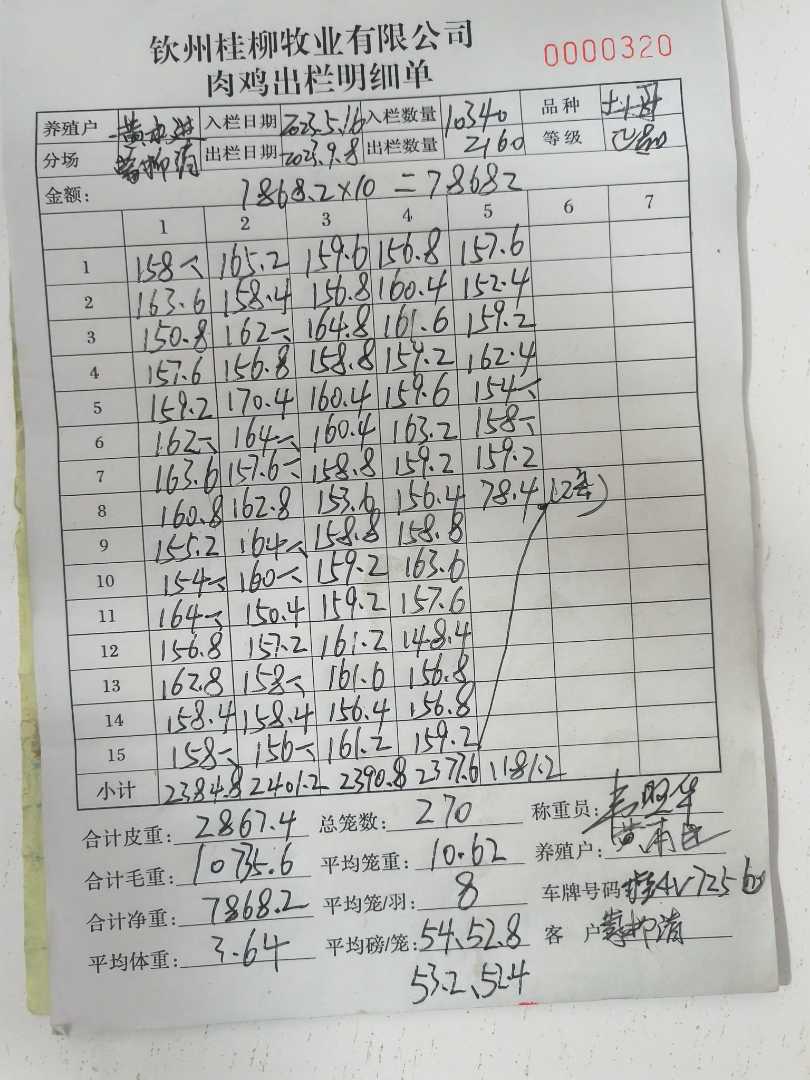 钦州桂柳牧业有限公司
0000320
肉鸡出栏明细单
养殖户 入栏日期 2023.5.16 入栏数量 10340 品种
分场 出栏日期 2023.9.8 出栏数量 2160 等级
金额: 7868.2×10=78682
1 2 3 4 5 6 7
1 158 165.2 159.6 156.8 157.6
2 163.6 158.4 156.8 160.4 152.4
3 150.8 162 164.8 161.6 159.2
4 157.6 156.8 158.8 159.2 162.4
5 159.2 170.4 160.4 159.6 154
6 162 164 160.4 163.2 158
7 163.6 157.6 158.8 159.2 159.2
8 160.8 162.8 153.6 156.4 78.4
9 155.2 164 158.8 158.8
10 154 160 159.2 163.6
11 164 150.4 159.2 157.6
12 156.8 157.2 161.2 148.4
13 162.8 158 161.6 156.8
14 158.4 158.4 156.4 156.8
15 158 156 161.2 159.2
小计 2384.8 2401.2 2390.8 2377.6 1181.2
合计皮重: 2867.4 总笼数: 270 称重员:
合计毛重: 10735.6 平均笼重: 10.62 养殖户:
合计净重: 7868.2 平均笼/羽: 8 车牌号码
平均体重: 3.64 平均磅/笼: 54、52.8 客 户
53.2、52.4